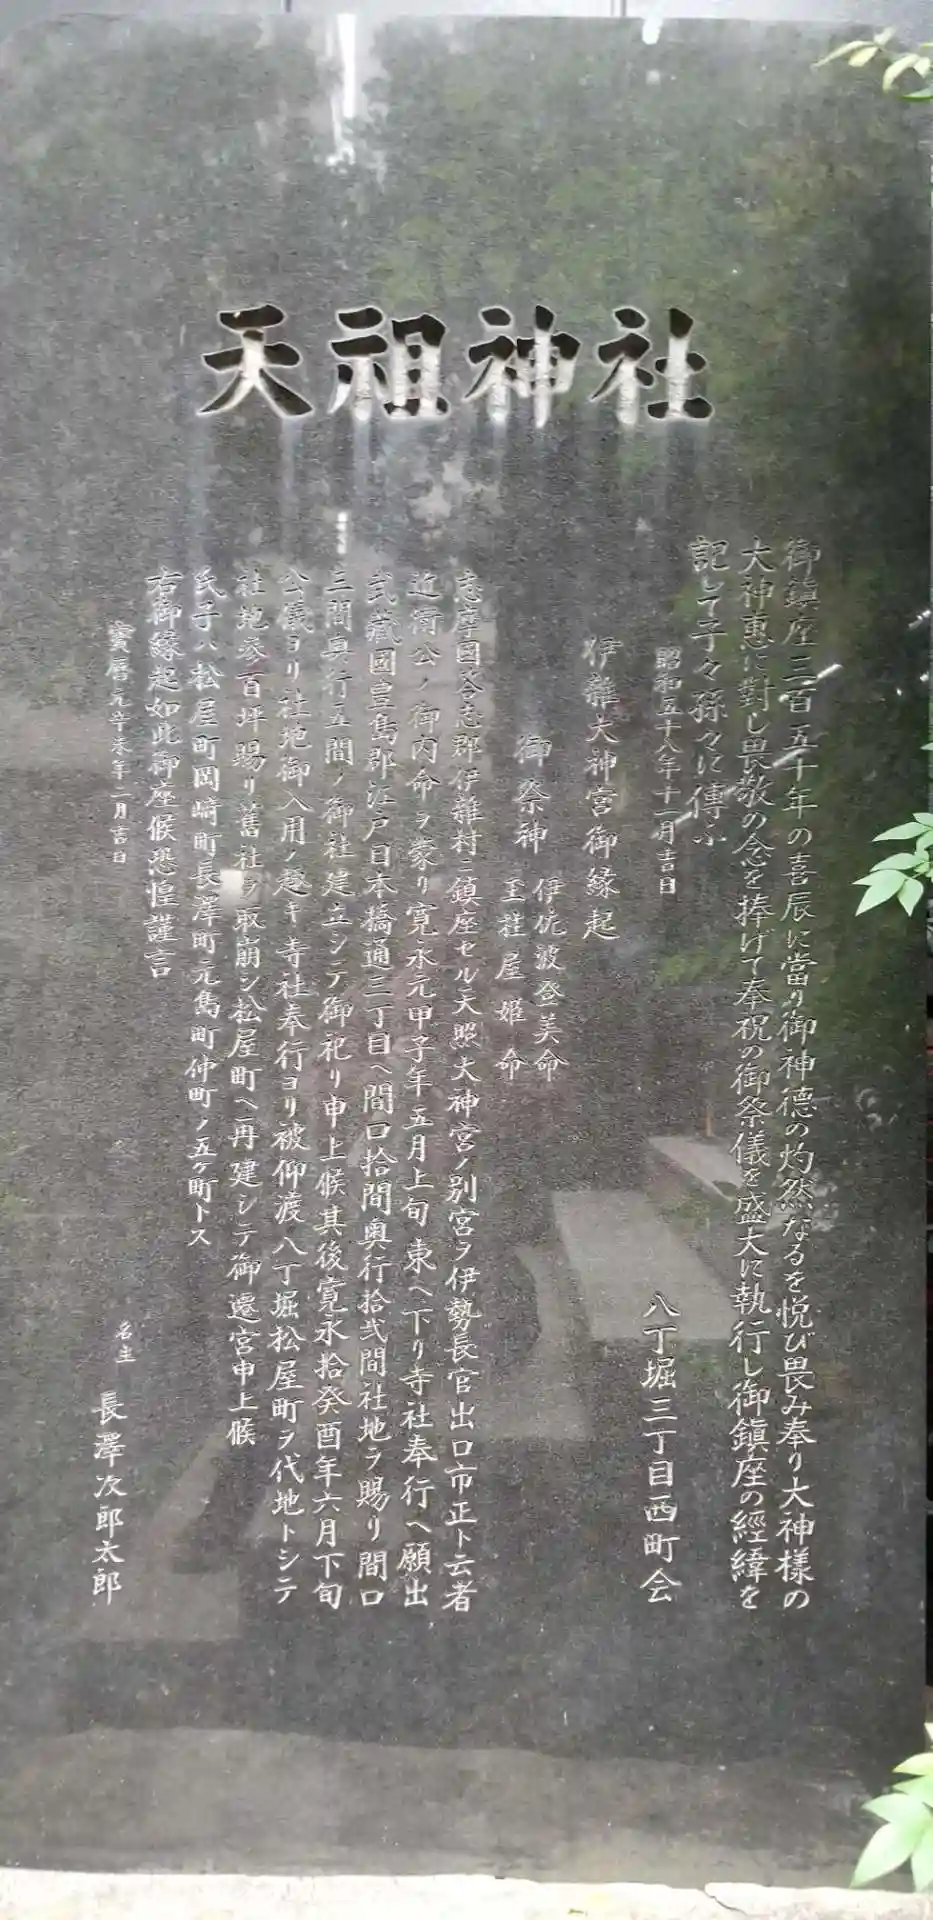 天祖神社
御鎮座三百五十年の喜辰に當り御神德の灼然なるを悦び畏み奉り大神様の
大神惠に對し畏敬の念を捧げて奉祝の御祭儀を盛大に執行し御鎮座の經緯を
記して子々孫々に傳ふ
昭和五十八年十一月吉日
八丁堀三丁目西町会
伊雜大神宮御縁起
御祭神
伊佐波登美命
玉柱屋姫命
志摩國答志郡伊雜村ニ鎮座セル天照大神宮ノ別宮ヲ伊勢長官出口市正ト云者
近衛公ノ御内命ヲ蒙リ寛永元甲子年五月上旬東ヘ下リ寺社奉行ヘ願出
武藏國豊島郡江戸日本橋通三丁目ヘ間口拾間奥行拾弐間社地ヲ賜リ間口
三間奥行五間ノ御社建立シテ御祀リ申上候其後寛永拾癸酉年六月下旬
公儀ヨリ社地御入用ノ趣キ寺社奉行ヨリ被仰渡八丁堀松屋町ヲ代地トシテ
社地参百坪賜リ舊社ヲ取崩シ松屋町ヘ再建シテ御遷宮申上候
氏子ハ松屋町岡﨑町長澤町元島町仲町ノ五ケ町トス
右御縁起如此御座候恐惶謹言
寳暦元辛未年二月吉日
名主
長澤次郎太郎